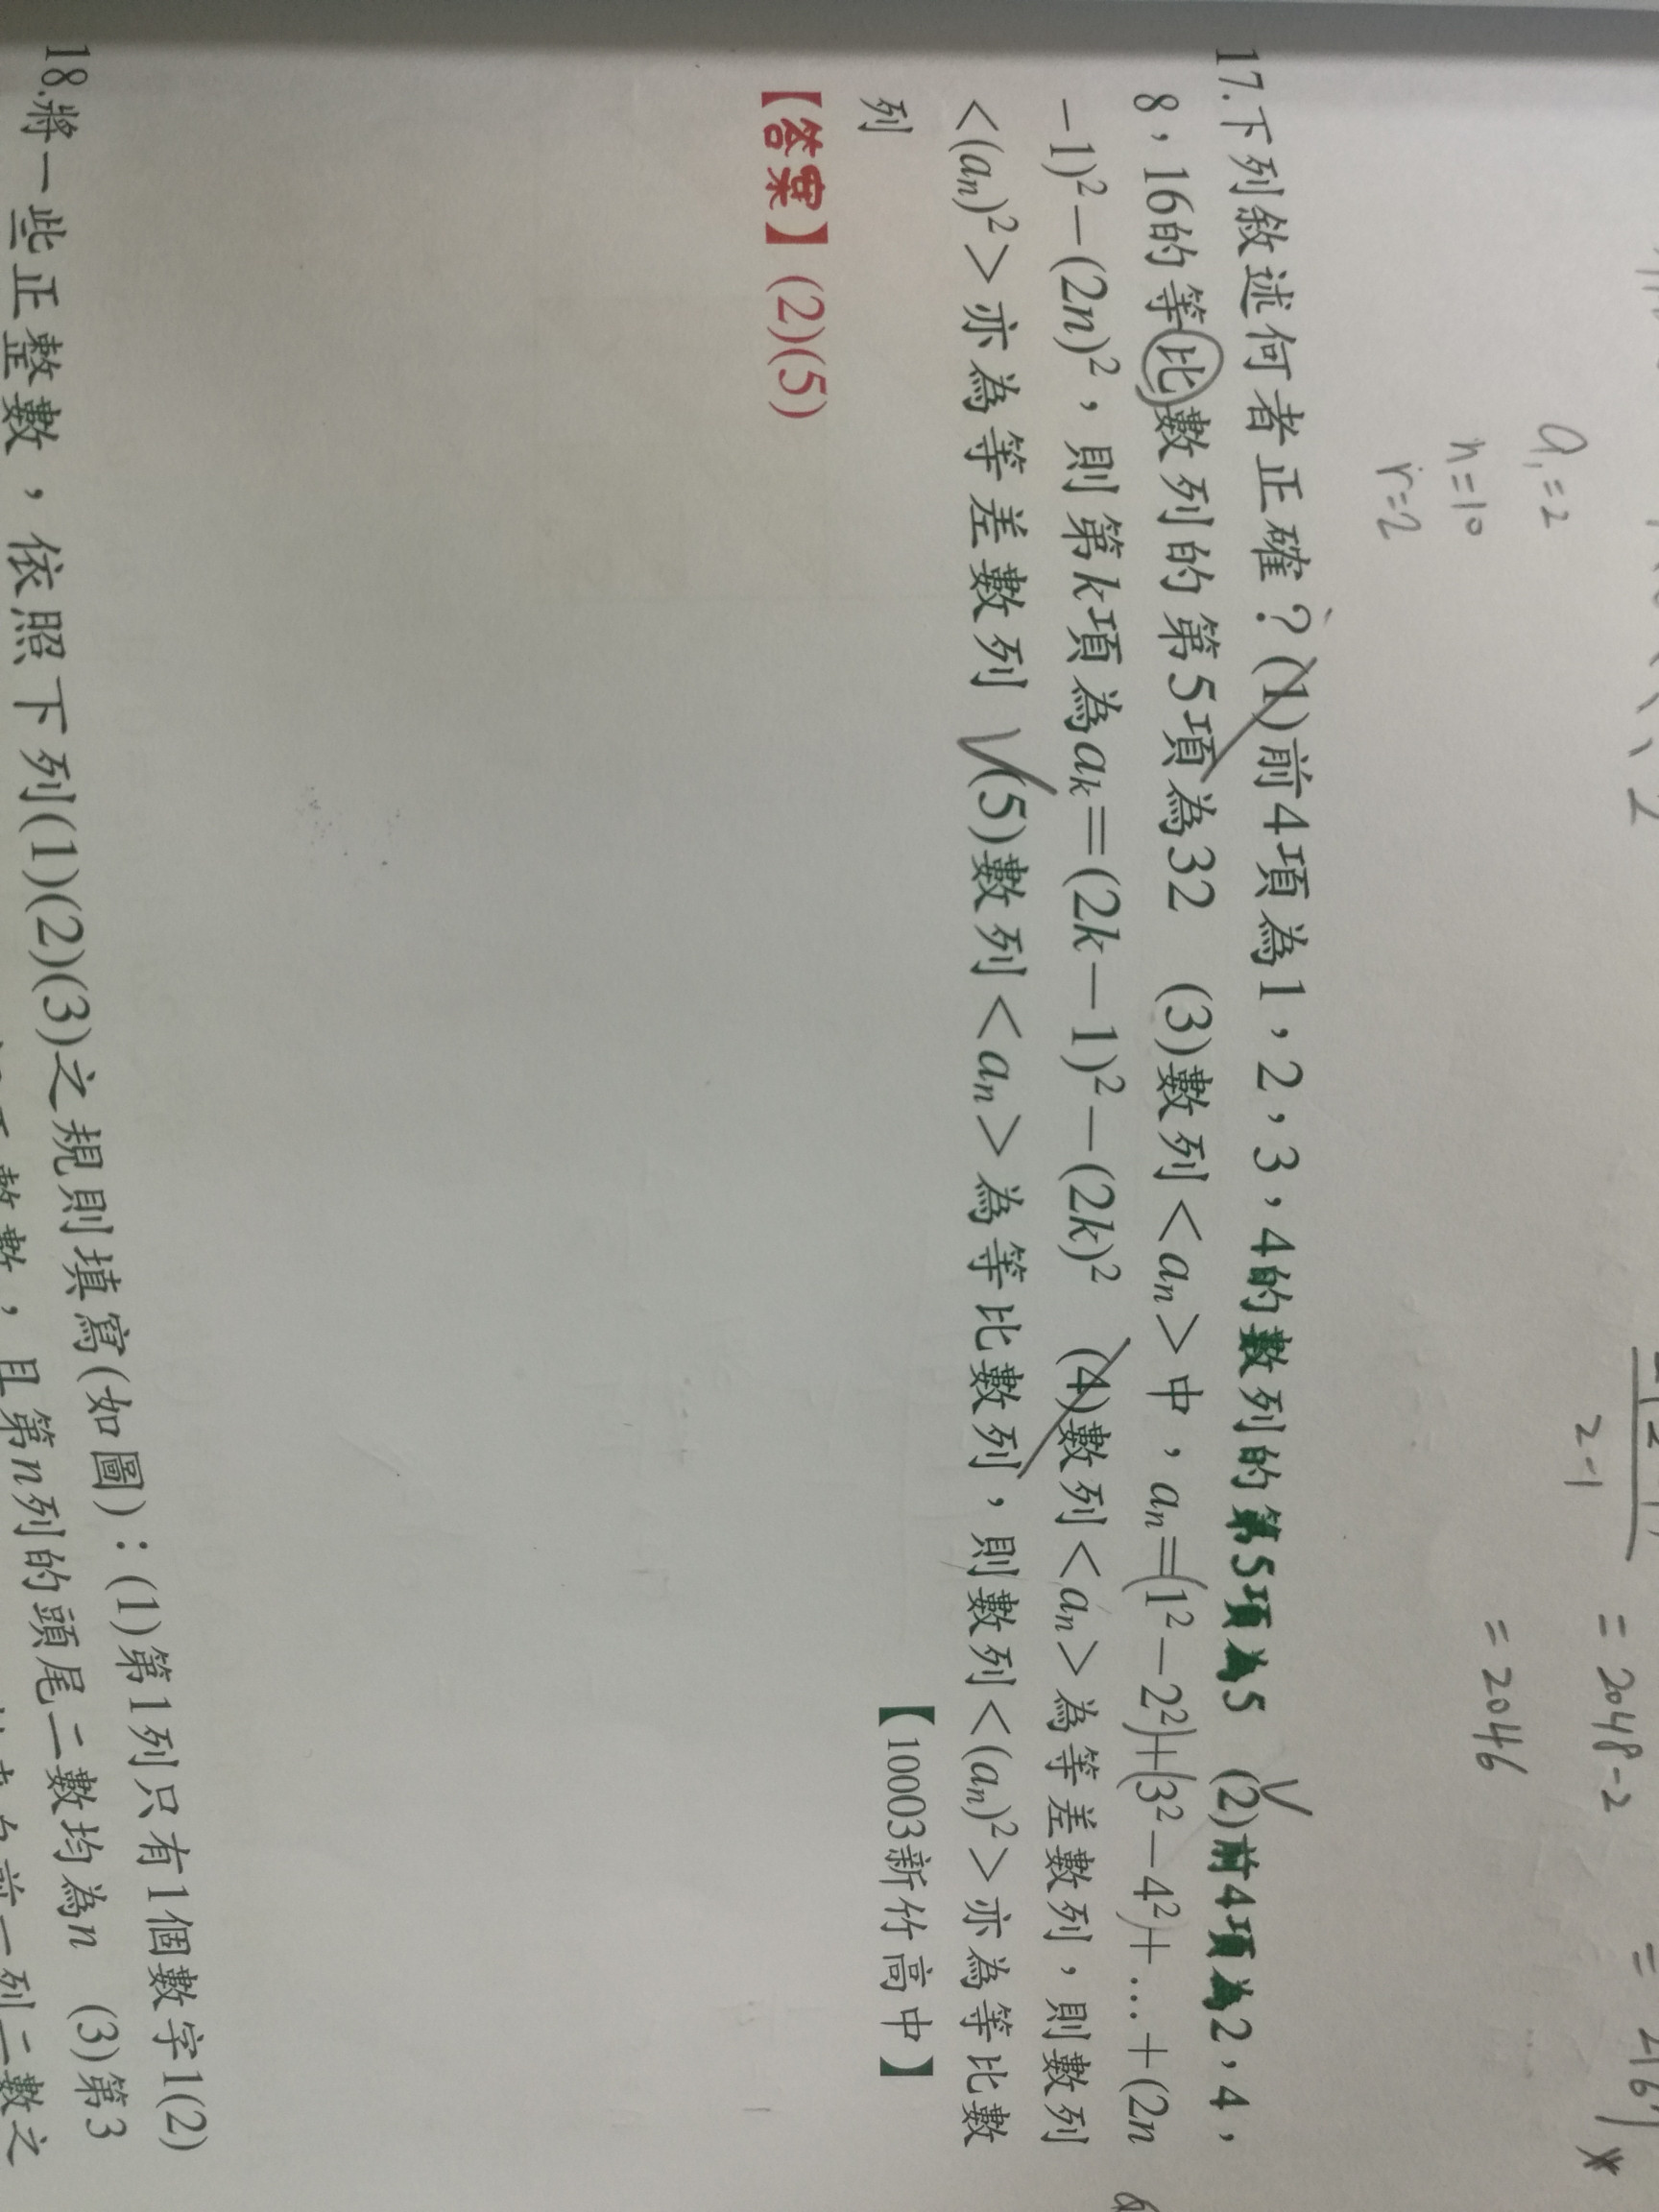 = 2048-2
2-1
= 2046
a₁=2
n=10
r=2
17.下列敘述何者正確?(1)前4項為1,2,3,4的數列的第5項為5 (2)前4項為2,4,
8,16的等比數列的第5項為32 (3)數列<aₙ>中,aₙ=(1²-2²)+(3²-4²)+…+(2n
-1)²-(2n)²,則第k項為aₖ=(2k-1)²-(2k)² (4)數列<aₙ>為等差數列,則數列
<(aₙ)²>亦為等差數列 (5)數列<aₙ>為等比數列,則數列<(aₙ)²>亦為等比數
列
【10003新竹高中】
【答案】(2)(5)
18.將一些正整數,依照下列(1)(2)(3)之規則填寫(如圖):(1)第1列只有1個數字1(2)
且第n列的頭尾二數均為n (3)第3
前一列二數之